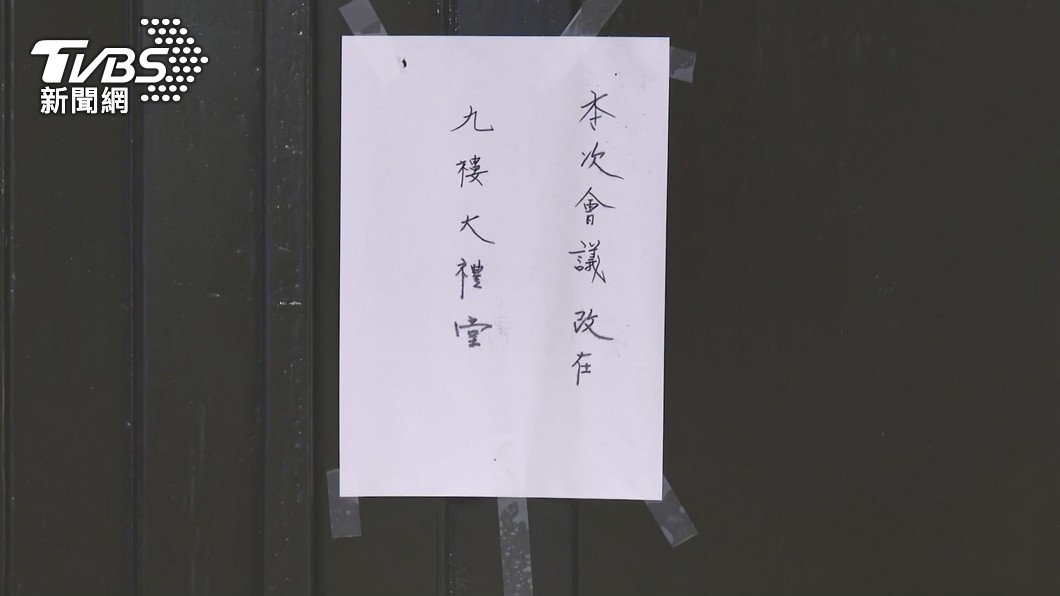 TVBS
新聞網
本次會議改在
九樓大禮堂